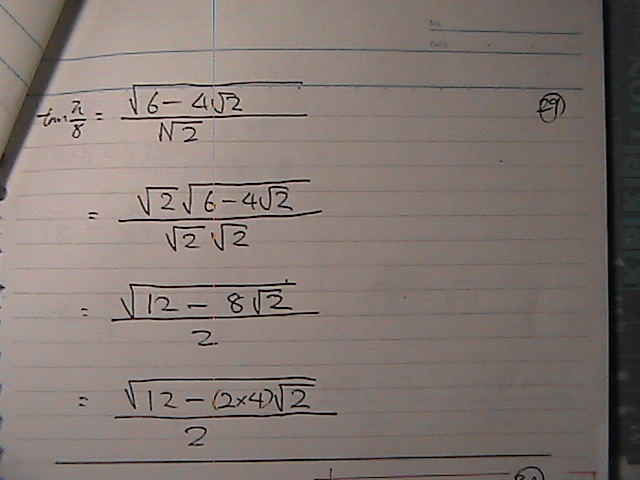 No.
DATE
tan π/8 = √(6 - 4√2) / √2
29
= √2 √(6 - 4√2) / √2 √2
= √(12 - 8√2) / 2
= √(12 - (2×4)√2) / 2